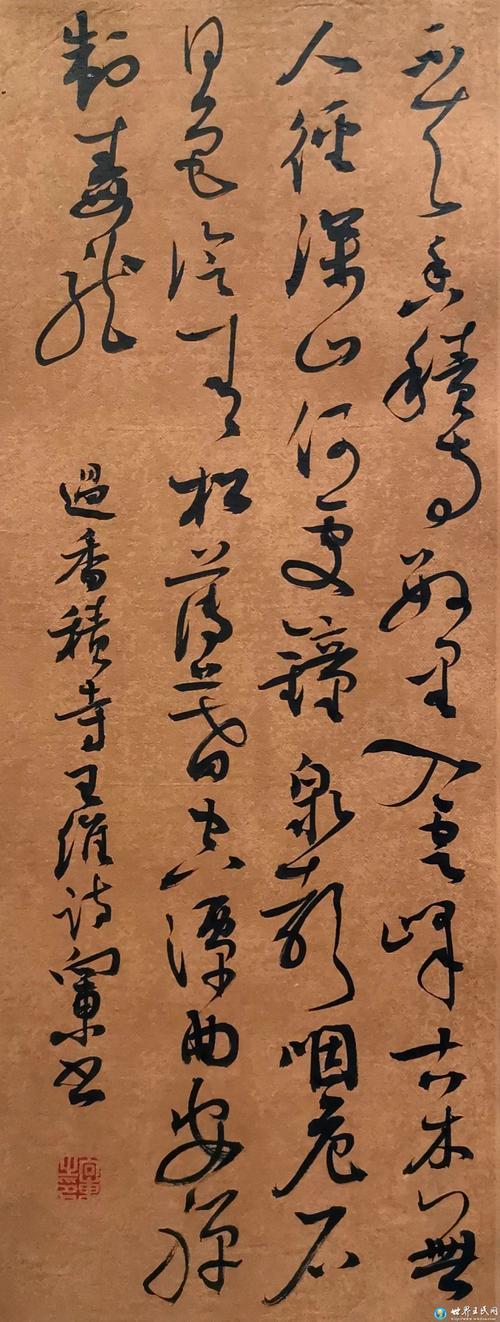 不知香积寺数里入云峰古木無
人徑深山何處鐘泉聲咽危石
日色冷青松薄暮空潭曲安禅
制毒龍
過香積寺王維詩向東书
世界王氏网